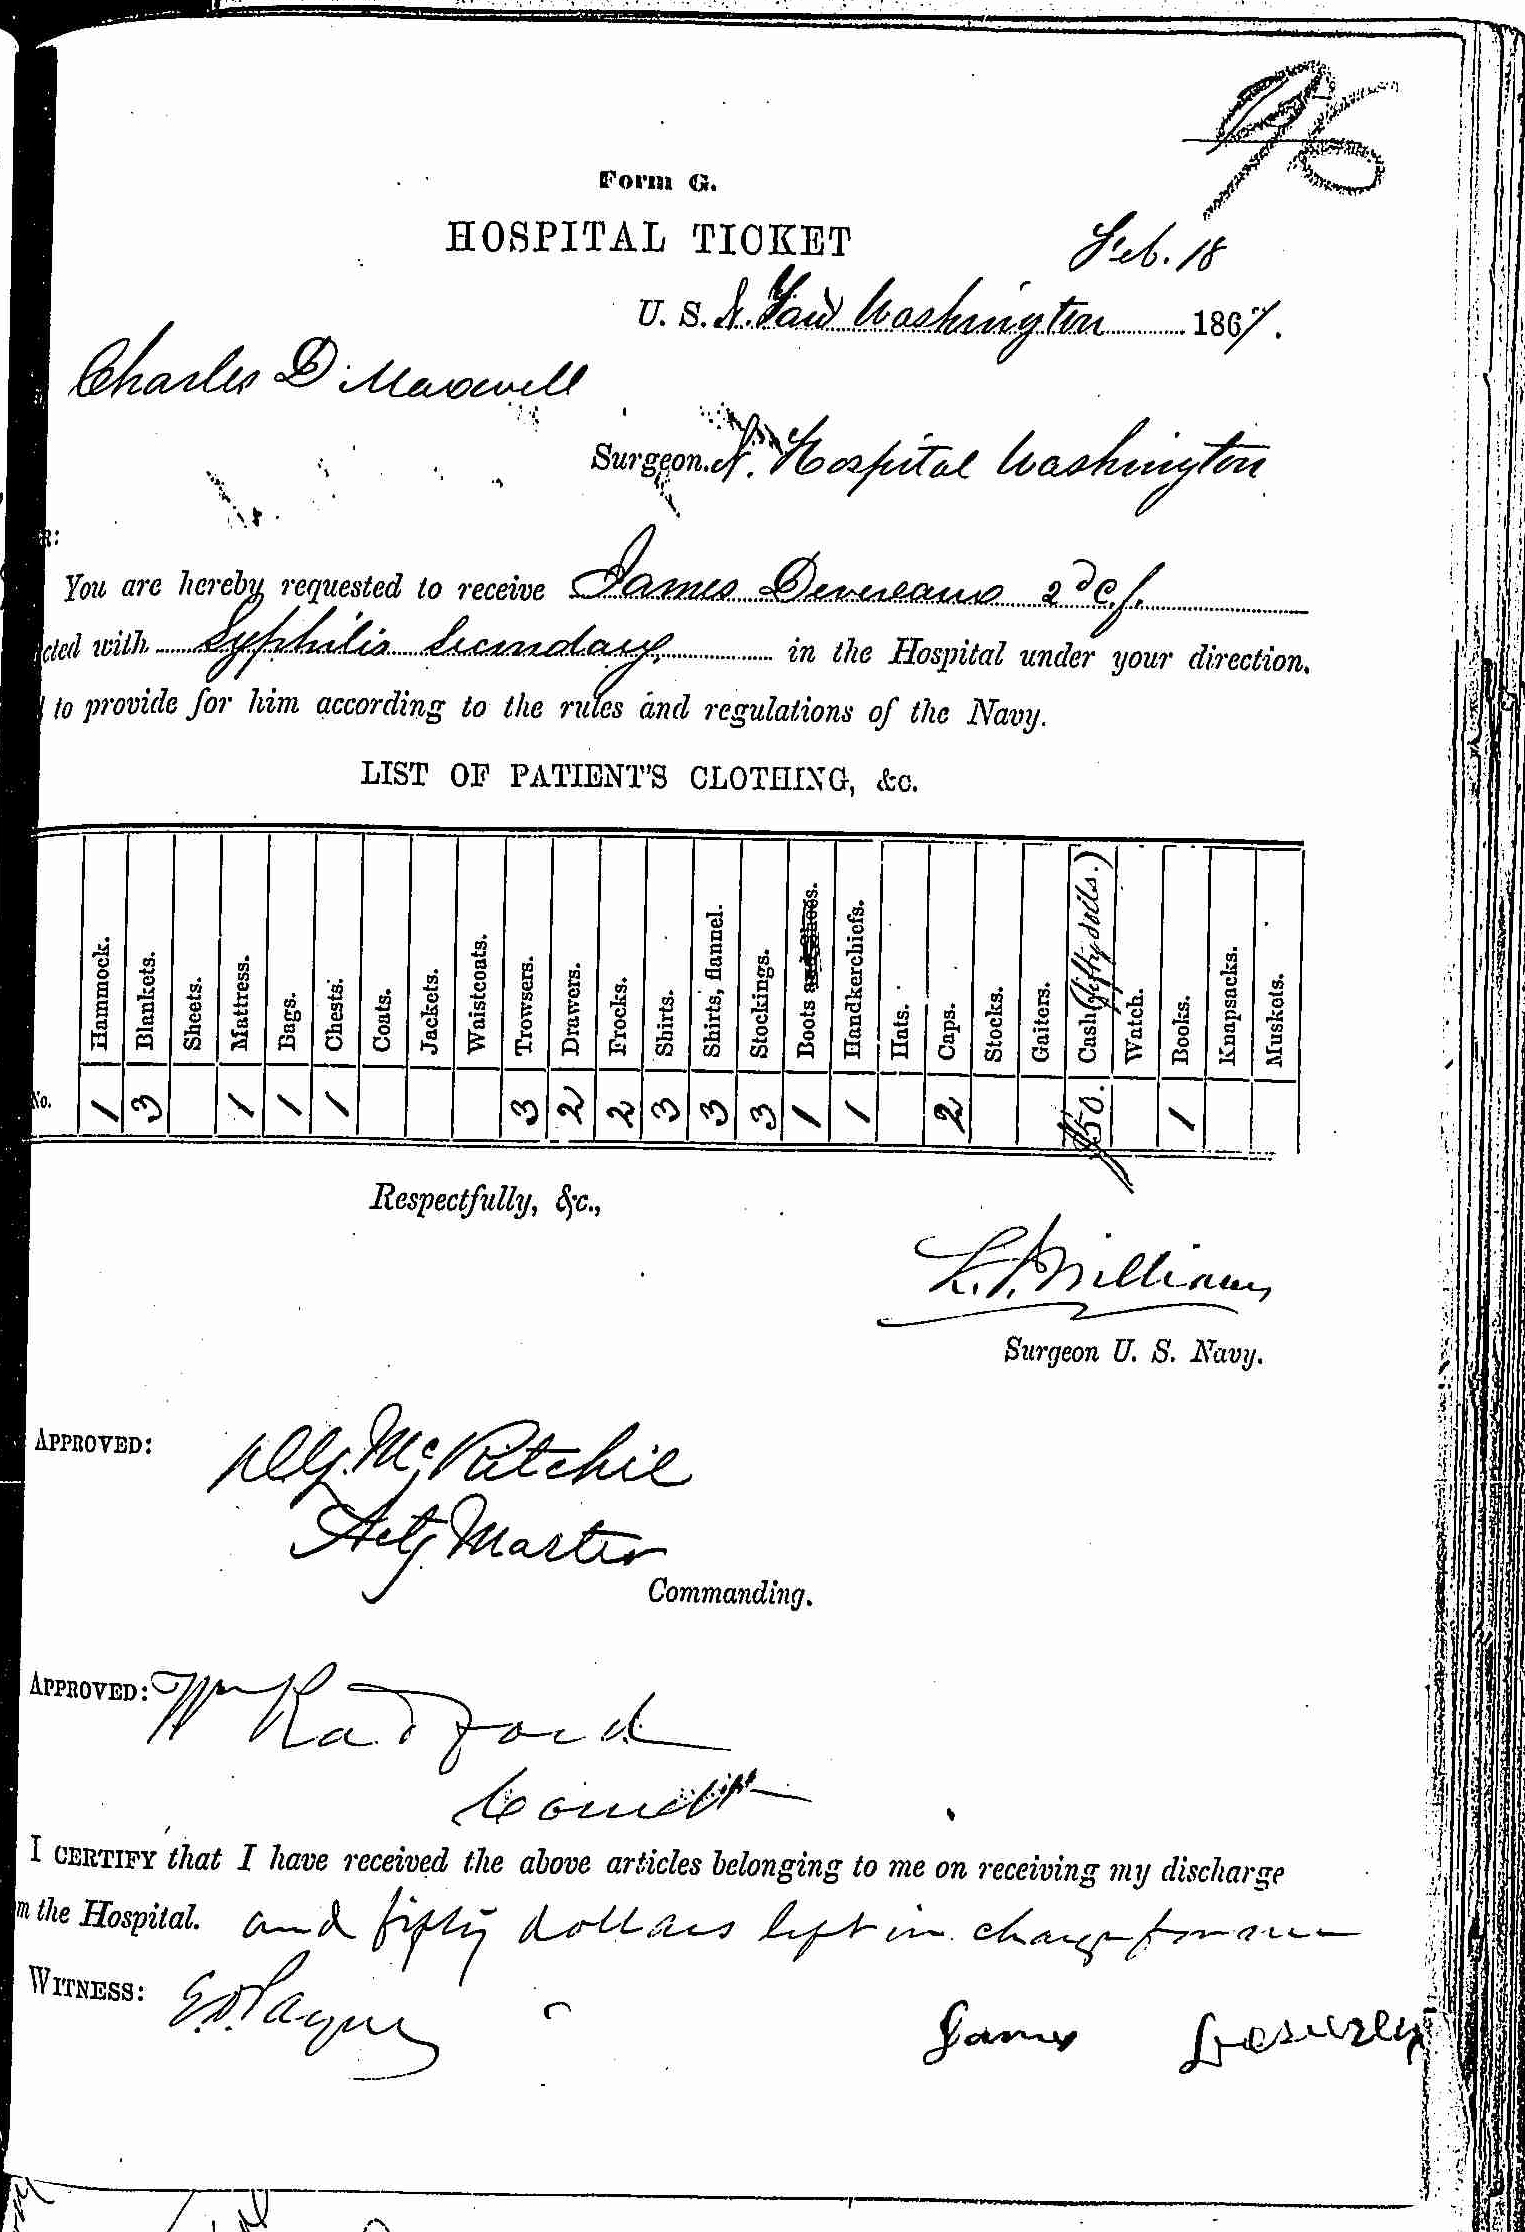 96
Form G.
HOSPITAL TICKET
Feb. 18
U. S. N. Yard Washington 1867.
Charles D Maxwell
Surgeon. N. Hospital Washington
R:
You are hereby requested to receive James Devereaux 2d C. f.
cted with Syphilis Secondary, in the Hospital under your direction,
to provide for him according to the rules and regulations of the Navy.
LIST OF PATIENT'S CLOTHING, &c.
Hammock. Blankets. Sheets. Mattress. Bags. Chests. Coats. Jackets. Waistcoats. Trowsers. Drawers. Frocks. Shirts. Shirts, flannel. Stockings. Boots and Shoes. Handkerchiefs. Hats. Caps. Stocks. Gaiters. Cash (fifty dolls.) Watch. Books. Knapsacks. Muskets.
No. 1 3 1 1 1 3 2 2 3 3 3 1 1 2 $50. 1
Respectfully, &c.,
Williams
Surgeon U. S. Navy.
APPROVED: McRitchie
Actg Master
Commanding.
APPROVED: Wm Radford
Comdt
I CERTIFY that I have received the above articles belonging to me on receiving my discharge
m the Hospital. and fifty dollars left in charge for me
WITNESS: E.D. Payne
James